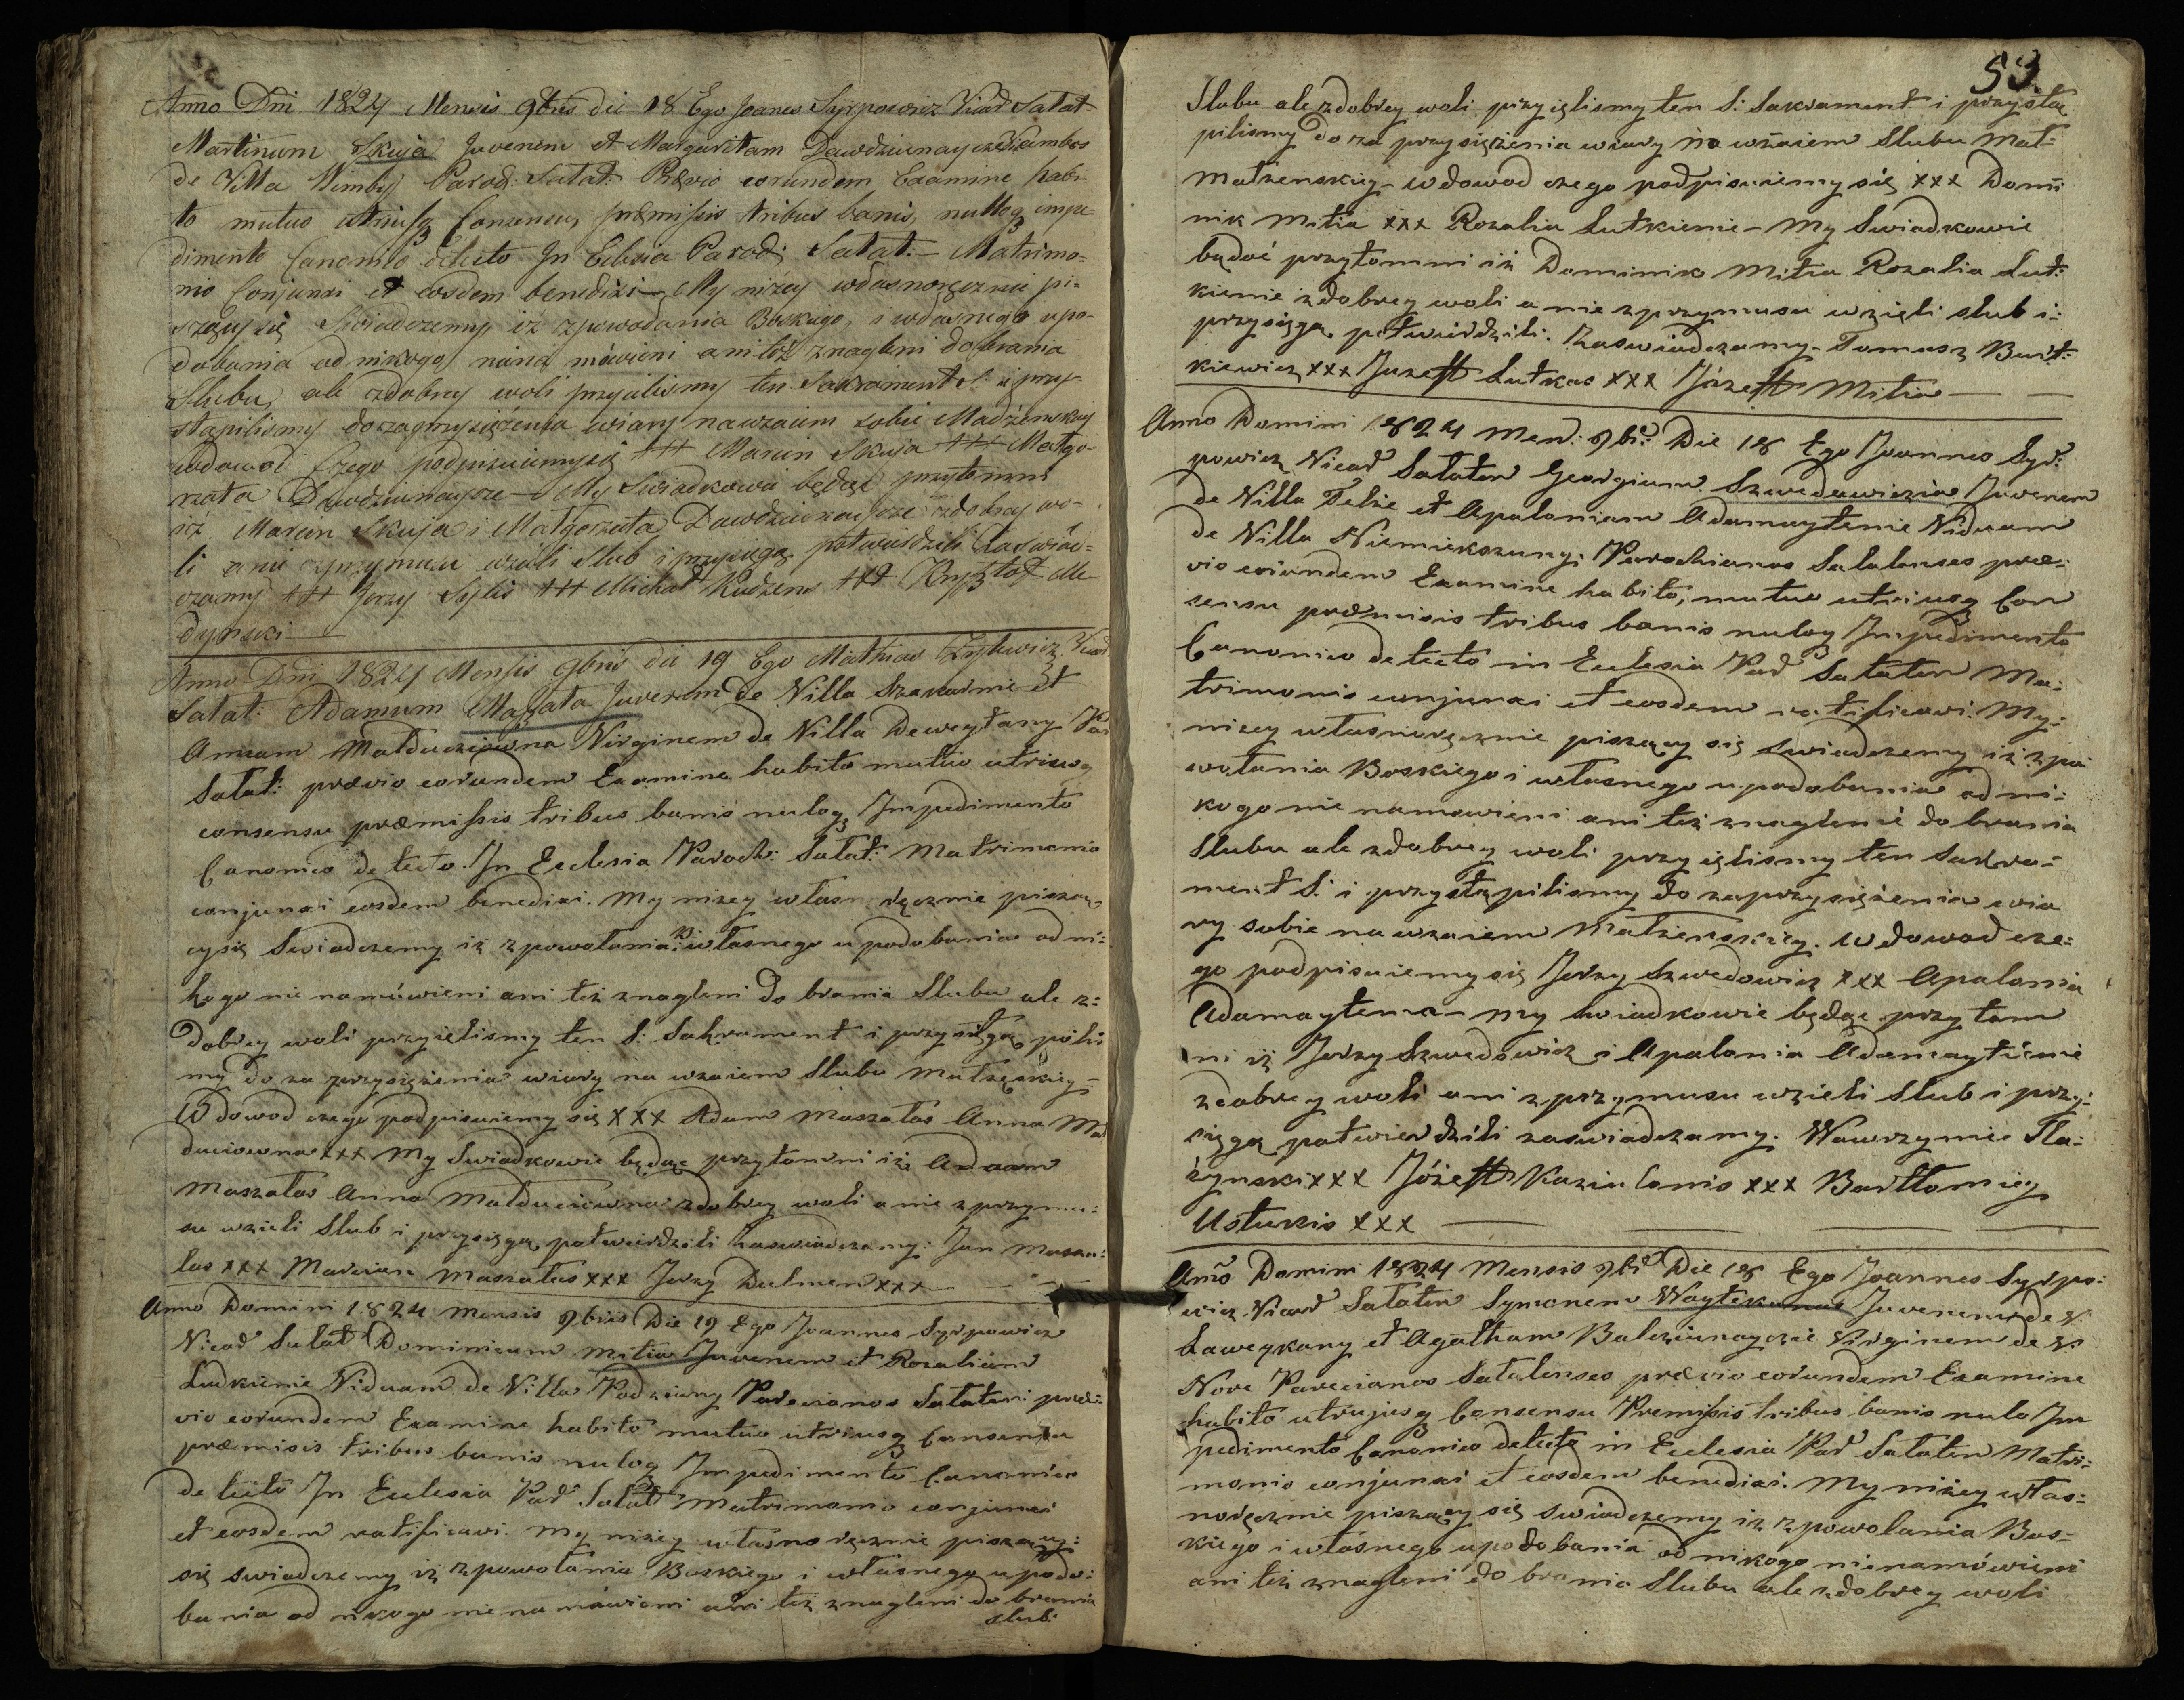 Anno Dni 1824 Mensis 9bris die 18 Ego Joanes Syrpowicz Vicad Salat
Martinum Skuja Juvenem et Margaritam Dawdziunaycze Ambos
de Villa Nimby Paroch: Salat: Prævio eorundem Examine habi-
to mutuo utriusq Consensu, præmissis tribus banis, nulloq impe-
dimento Canonico detecto In Eclesia Paroch: Salat:- Matrimo-
nio Conjunxi et eosdem benedixi - My niżey własnoręcznie pi-
szący się Swiadczemy iż zpowołania Boskiego, i własnego upo-
dobania od nikogo nie na mówieni ani też znagleni do brania
Slubu, ale zdobrey woli przyielismy ten Sakrament S: i przy-
stąpilismy do zaprzysiężenia wiary nawzaiem sobie Madżenskiey
wdowod Czego podpisuiemysię +++ Marcin Skuja +++ Małgo-
rzata Dawdziunaycze - My Swiadkowie będąc przytomni
iż Marcin Skuja i Małgorzata Dawdziunaycze zdobrey wo-
li anie zprzymusu wzieli Slub i przysięgą potwierdzili Zaswiad-
czamy +++ Jerzy Sylis +++ Michał Kudzens +++ Krysztof Me
dynski
Anno Dni 1824 Mensis 9bris die 19 Ego Mathias Czyzewicz Vicad
Salat: Adamum Maszata Juvenem de Villa Szakarnie et
Annam Malduciowna Virginem de Villa Deweytany Par
Salat: prævio eorundem Examine habito mutuo utriusq
consensu præmissis tribus banis nuloq Impedimento
Canonico detecto. In Ecclesia Paroch: Salat: Matrimonio
conjunxi eosdem benedixi. My niżey własn ręcznie piszą
cysię Swiadczemy iż zpowołania i własnego upodobania od ni-
kogo nie namówieni ani też znagleni do brania Slubu ale z-
dobrey woli przyielismy ten S: Sakrament i przystąpilis
my do za przysiężenia wiary na wzaiem Slubu małżęskiey-
W dowod czego podpisuiemy się xxx Adam Maszatas Anna Mal
duciowna xxx My Swiadkowie będąc przytomni iże Adaam
Maszatas Anna Malduciowna zdobrey woli a nie zprzymu-
su wzieli Slub i przysięgą potwierdzili Zaswiadczamy: Jan Masza-
tas xxx Marcian Maszatas xxx Jerzy Dulmen xxx
Anno Domini 1824 Mensis 9bris Die 19 Ego Joannes Syrpowicz
Vicad Salat Dominicum Mitia Juvenem et Rozaliam
Ludkienie Viduam de Villa Podziuny Parecianos Salaten: præ-
vio eorundem Examine habito mutuo utriusq Consensu
præmisis tribus banis nuloq Impedimento Canonico
detecto In Ecclesia Pad Salat Matrimonio conjunxi
et eosdem ratificavi. My niżey własno ręcznie piszący:
się swiadczemy iż zpowołania Boskiego i własnego upodo-
bania od nikogo nie na mówieni ani też znagleni do brania
slub:
53.
Slubu ale zdobrey woli przyięlismy ten S: Sakrament i przystą
pilismy do za przysiężenia wiary na wzaiem Slubu Mał-
małżenskiey - w dowod czego podpisuiemy się xxx Domi
nik Mitia xxx Rozalia Lutkienie - My Swiadkowie
będąć przytomni iż Dominik Mitia Rozalia Lut-
kienie zdobrey woli a nie zprzymusu wzięli slub i-
przysięgą potwierdzili. Zaswiadczamy - Tomasz But-
kiewicz xxx Juzeff Lutkas xxx Józeff Mitia
Anno Domini 1824 Men: 9bis Die 18 Ego Joannes Syr-
powicz Vicad Salaten Georgium Szwedowicia Juvenem
de Villa Telże et Apaloniam Adamaytenie Viduam
de Villa Niemiekszuny. Parochianos Salatenses præ-
vio eorundem Examine habito, mutuo utriusq Con
sensu præmisis tribus banis nuloq Impedimento
Canonico detecto in Ecclesia Pad Salaten Ma-
trimonio conjunxi et eosdem ratificavi. My-
niżey własnoręcznie piszący się swiadczemy iż zpo
wołania Boskiego i własnego upodobania od ni-
kogo nie namowieni ani też znaglenié do brania
Slubu ale zdobrey woli przyięlismy ten Sakra-
ment S: i przystąpilismy do zaprzysiężenia wia
ry sobie na wzaiem Małżenskiey. W dowod cze-
go podpisuiemysię Jerzy Szwedowicz xxx Apalonia
Adamaytenia - My swiadkowie będąc przytom
ni iż Jerzy Szwedowicz i Apalonia Adamaytienie
zdobrey woli ani zprzymusu wzieli Slub i przy-
sięgą potwierdzili zaswiadczamy. Wawrzyniec Tla-
żynski xxx Józeff Kaziulonis xxx Bartłomiey
Ustukis xxx
Anno Domini 1824 Mensis 9bis Die 18 Ego Joannes Syrpo-
wicz Vicad Salaten Symonem Waytekunas Juvenem de V.
Laweykany et Agatham Balcziunaycie Virginem de V.
Nove Parecianos Salatenses prævio eorundem Examine
habito utrujusq Consensu Premissis tribus banis nulo Im
pedimento Canonico detecto in Ecclesia Pad Salaten Matri-
monio conjunxi et eosdem benedixi. My niżey włas-
noręcznie piszący się swiadczemy iż zpowolania Bos-
kiego i własnego upodobania od nikogo nienamówieni
ani też znagleni do brania Slubu ale zdobrey woli